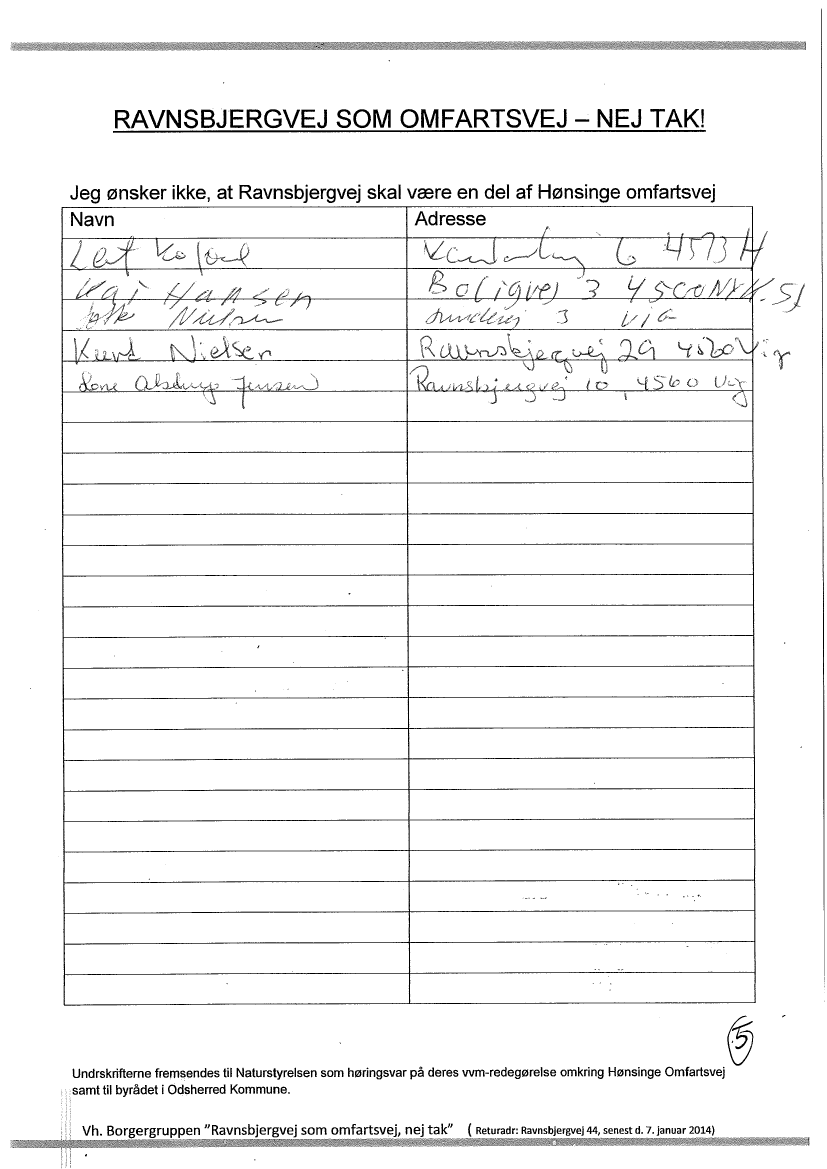 RAVNSBJERGVEJ SOM OMFARTSVEJ – NEJ TAK!
Jeg ønsker ikke, at Ravnsbjergvej skal være en del af Hønsinge omfartsvej
Navn Adresse
Leif Kofoed 6 4573 H
Kaj Hansen Boligvej 3 4500 NYK. SJ
Nielsen 3 VIG
Kurd Nielsen Ravnsbjergvej 29 4560 Vig
Lone Alsdrup Jensen Ravnsbjergvej 10, 4560 Vig
5
Undrskrifterne fremsendes til Naturstyrelsen som høringsvar på deres vvm-redegørelse omkring Hønsinge Omfartsvej
samt til byrådet i Odsherred Kommune.
Vh. Borgergruppen "Ravnsbjergvej som omfartsvej, nej tak" ( Returadr: Ravnsbjergvej 44, senest d. 7. januar 2014)